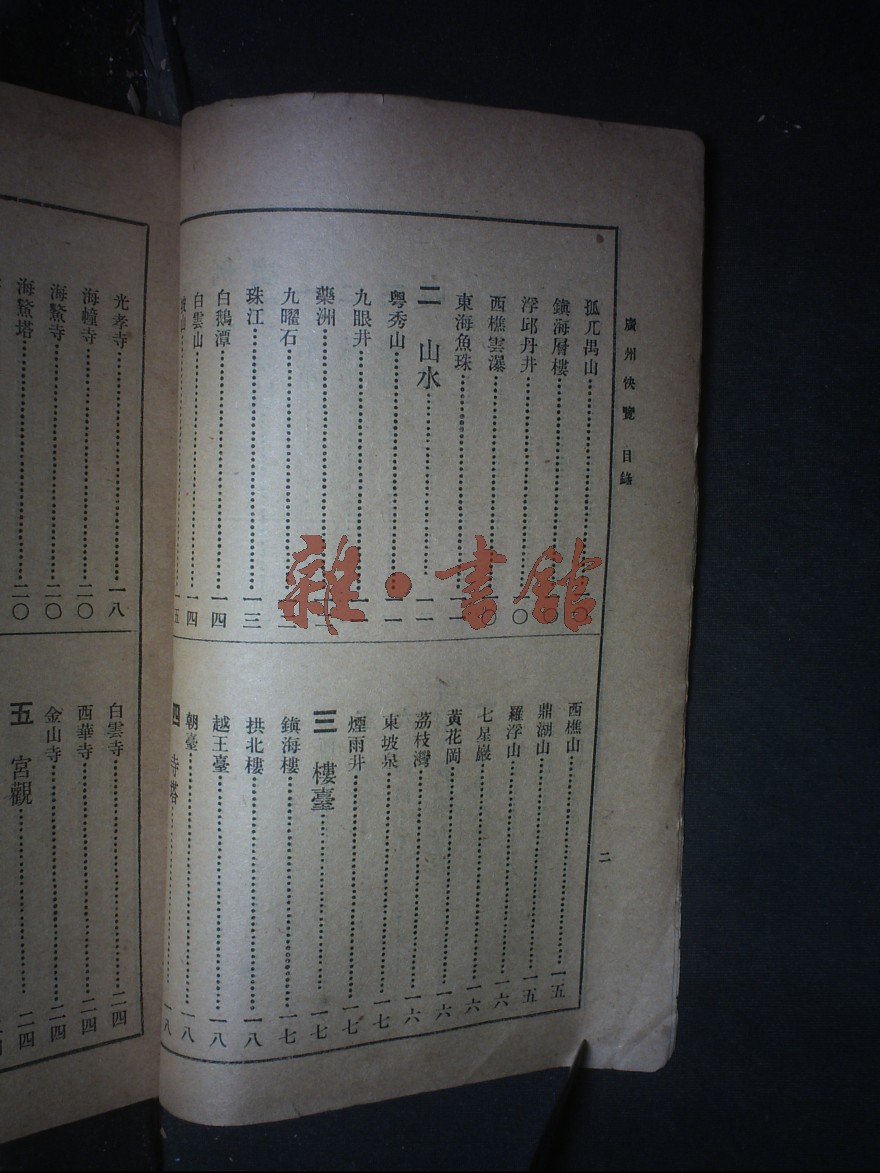 廣州快覽 目錄
二
孤兀禺山……一〇
鎮海層樓……一〇
浮邱丹井……一〇
西樵雲瀑……一〇
東海魚珠……一一
二 山水……一一
粤秀山……一一
九眼井……
藥洲……
九曜石……
珠江……一三
白鵝潭……一四
白雲山……一四
西樵山……一五
鼎湖山……一五
羅浮山……一六
七星巖……一六
黃花岡……一六
荔枝灣……一六
東坡泉……一七
煙雨井……一七
三 樓臺……一七
鎮海樓……一七
拱北樓……一八
越王臺……一八
朝臺……一八
四 寺塔……一八
光孝寺……一八
海幢寺……二〇
海鰲寺……二〇
海鰲塔……二〇
白雲寺……二四
西華寺……二四
金山寺……二四
五 宮觀……二四
雜·書館